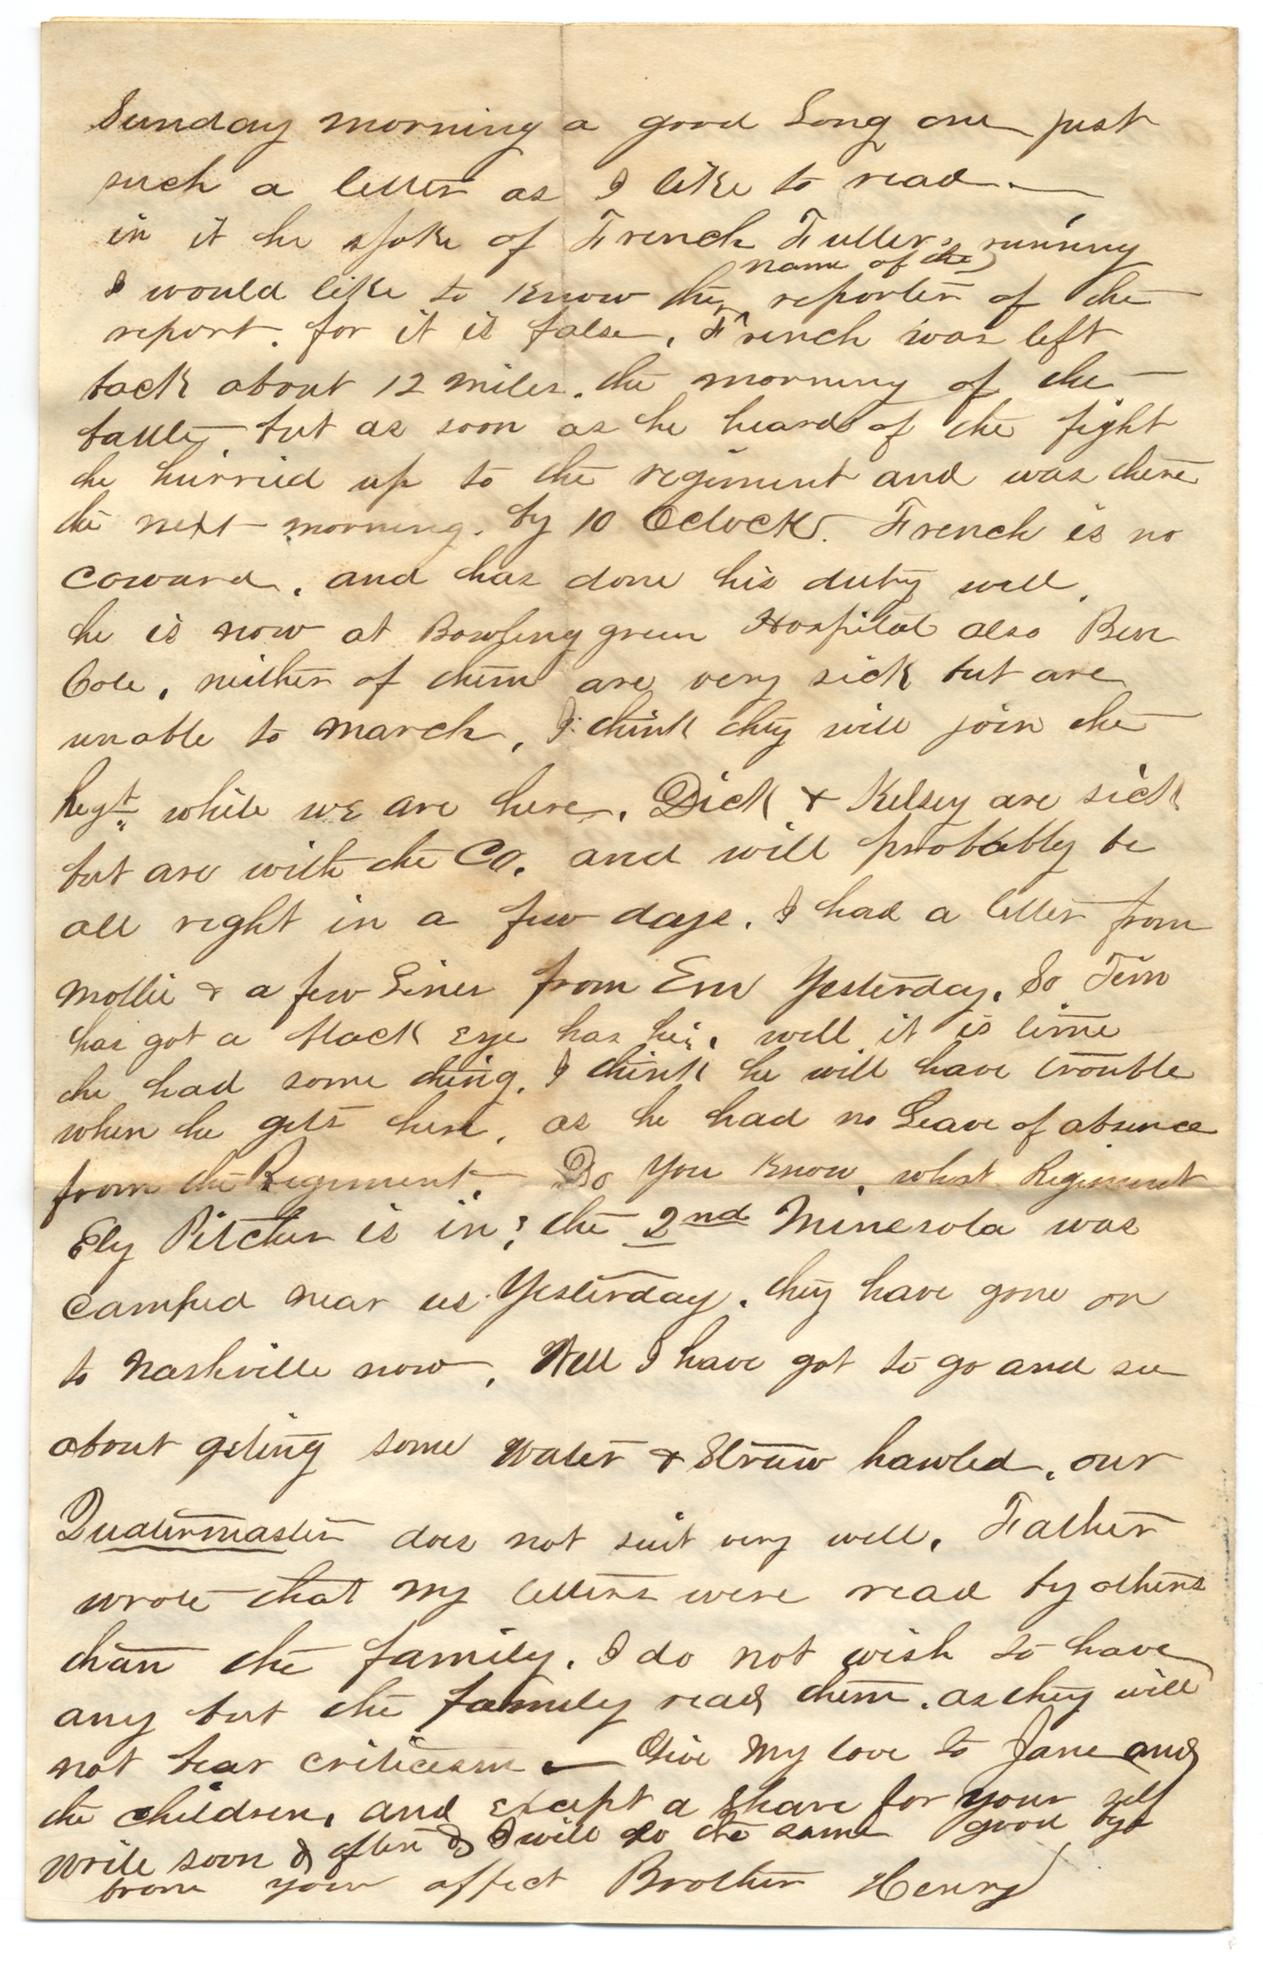 Sunday morning a good Long one just
such a letter as I like to read.
in it he spoke of French Fullers running
name of the
I would like to know the reporter of the
report. for it is false, French was left
back about 12 miles. the morning of the
battle, but as soon as he heard of the fight
he hurried up to the regiment and was there
the next morning. by 10 Oclock. French is no
coward, and has done his duty well.
he is now at Bowling green Hospital also Ben
Cole, neither of them are very sick but are
unable to march, I think they will join the
Regt. while we are here. Dick & Kelsey are sick
but are with the Co. and will probably be
all right in a few days. I had a letter from
Mollie & a few Lines from Em Yesterday. So Tim
has got a black eye has he. well it is time
he had some thing. I think he will have trouble
when he gets here, as he had no Leave of absence
from the Regiment. Do you know, what Regiment
Ely Pitcher is in; the 2nd Minesota was
camped near us Yesterday. they have gone on
to Nashville now, Well I have got to go and see
about geting some water & straw hawled, our
Quatermaster does not suit very well, Father
wrote that my letters were read by others
than the family. I do not wish to have
any but the family read them. as they will
not bear criticism. Give my love to Jane and
the children, and except a share for your self
write soon & often & I will do the same good bye
from your affect Brother Henry